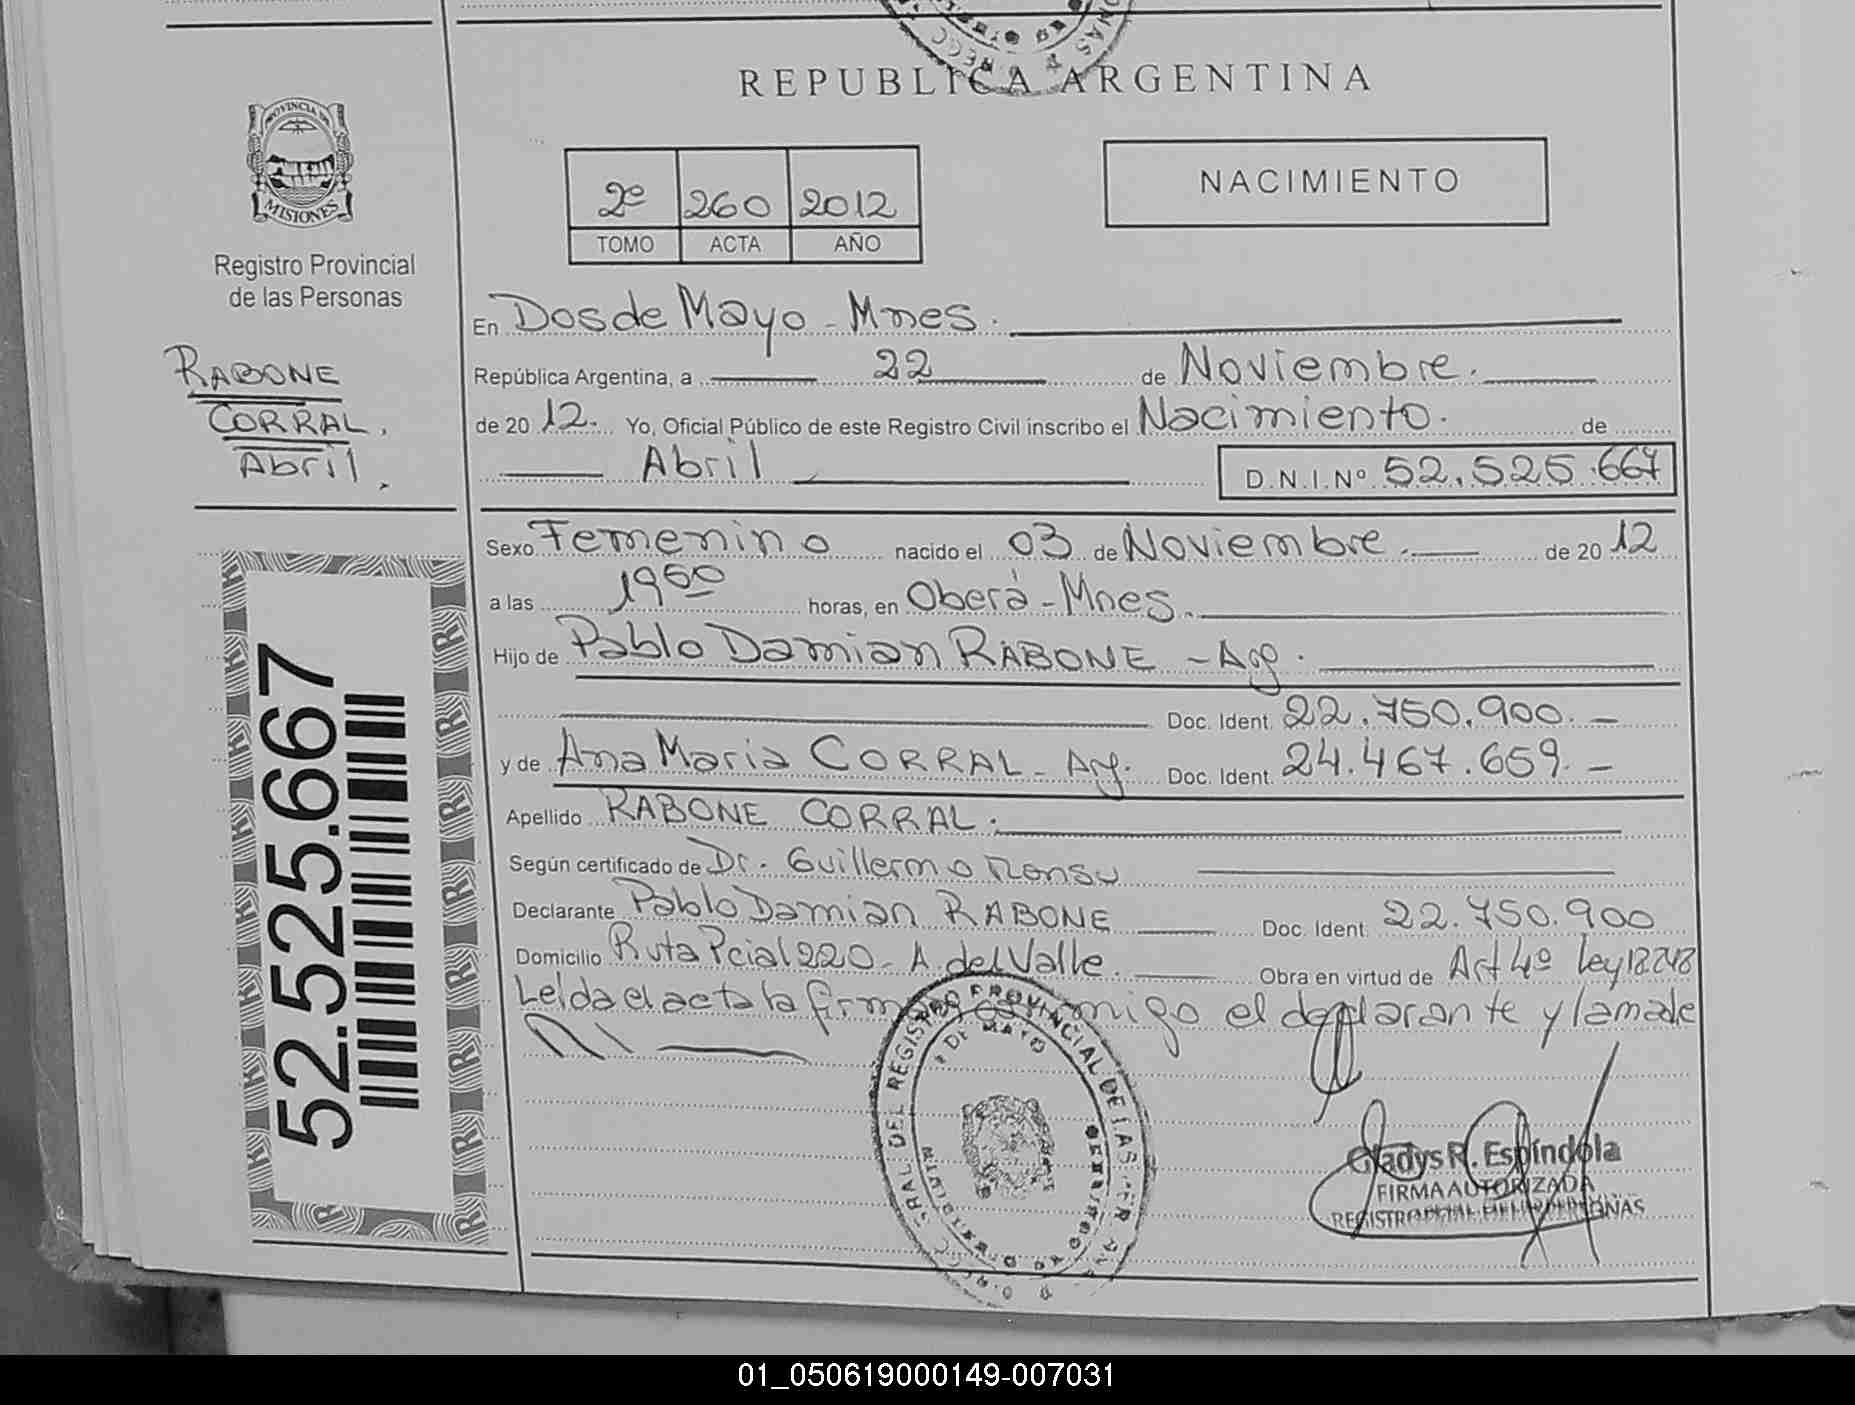 REPUBLICA ARGENTINA
PROVINCIA DE
MISIONES
Registro Provincial
de las Personas
RABONE
CORRAL,
Abril.
52.525.667
2º 260 2012
TOMO ACTA AÑO
NACIMIENTO
En Dos de Mayo - Mnes.
República Argentina, a 22 de Noviembre.
de 20 12. Yo, Oficial Público de este Registro Civil inscribo el Nacimiento. de
Abril D.N.I.Nº 52.525.667
Sexo Femenino nacido el 03 de Noviembre. de 20 12
a las horas, en Oberá - Mnes.
Hijo de Pablo Damian RABONE - Arg.
Doc. Ident. 22.750.900. -
y de Ana Maria CORRAL - Arg. Doc. Ident. 24.467.659. -
Apellido RABONE CORRAL.
Según certificado de Dr. Guillermo
Declarante Pablo Damian RABONE Doc. Ident. 22.750.900
Domicilio Ruta Pcial 220 - A. del Valle. Obra en virtud de Art 4º Ley 18248
Leída el acta la firman conmigo el declarante y la madre
REGISTRO PROVINCIAL DE LAS
DE MAYO
Gladys R. Espíndola
FIRMA AUTORIZADA
01_050619000149-007031